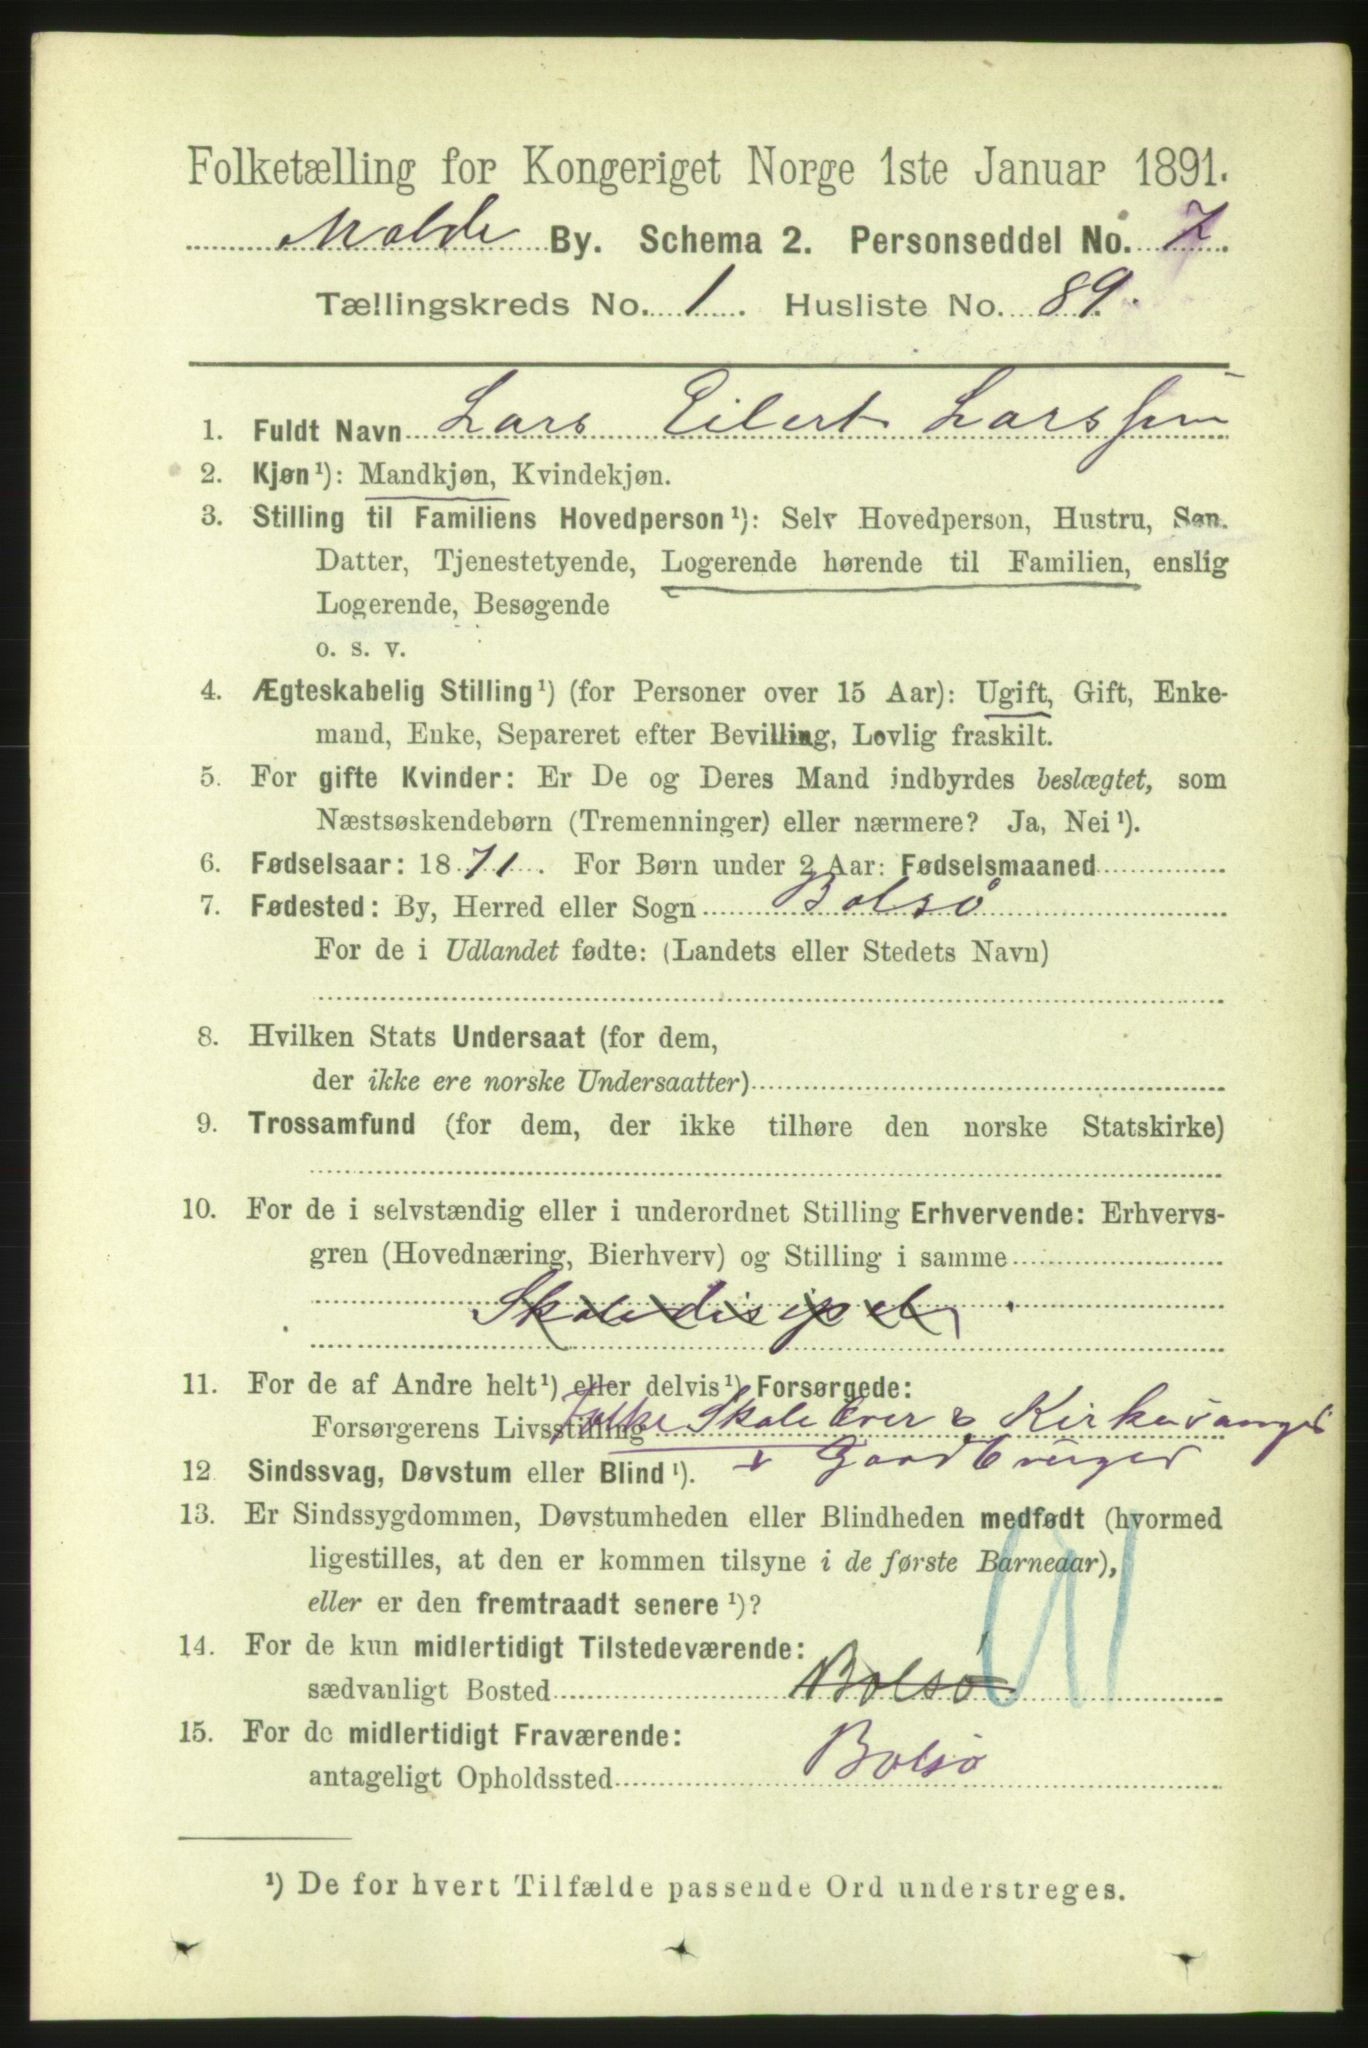 Folketælling for Kongeriget Norge 1ste Januar 1891.
Molde By. Schema 2. Personseddel No. 7.
Tællingskreds No. 1. Husliste No. 89.
1. Fuldt Navn Lars Eilert Larssen
2. Kjøn¹): Mandkjøn, Kvindekjøn.
3. Stilling til Familiens Hovedperson¹): Selv Hovedperson, Hustru, Søn.
Datter, Tjenestetyende, Logerende hørende til Familien, enslig
Logerende, Besøgende
o. s. v.
4. Ægteskabelig Stilling¹) (for Personer over 15 Aar): Ugift, Gift, Enke-
mand, Enke, Separeret efter Bevilling, Lovlig fraskilt.
5. For gifte Kvinder: Er De og Deres Mand indbyrdes beslægtet, som
Næstsøskendebørn (Tremenninger) eller nærmere? Ja, Nei¹).
6. Fødselsaar: 1871. For Børn under 2 Aar: Fødselsmaaned
7. Fødested: By, Herred eller Sogn Bolsø
For de i Udlandet fødte: (Landets eller Stedets Navn)
8. Hvilken Stats Undersaat (for dem,
der ikke ere norske Undersaatter)
9. Trossamfund (for dem, der ikke tilhøre den norske Statskirke)
10. For de i selvstændig eller i underordnet Stilling Erhvervende: Erhvervs-
gren (Hovednæring, Bierhverv) og Stilling i samme
Skoledisipel
11. For de af Andre helt¹) eller delvis¹) Forsørgede:
Forsørgerens Livsstilling Folke Skolelærer & Kirkesanger
12 Sindssvag, Døvstum eller Blind¹). & Gaardbruger
13. Er Sindssygdommen, Døvstumheden eller Blindheden medfødt (hvormed
ligestilles, at den er kommen tilsyne i de første Barneaar),
eller er den fremtraadt senere¹)?
14. For de kun midlertidigt Tilstedeværende:
sædvanligt Bosted Bolsø
15. For de midlertidigt Fraværende:
antageligt Opholdssted Bolsø
¹) De for hvert Tilfælde passende Ord understreges.